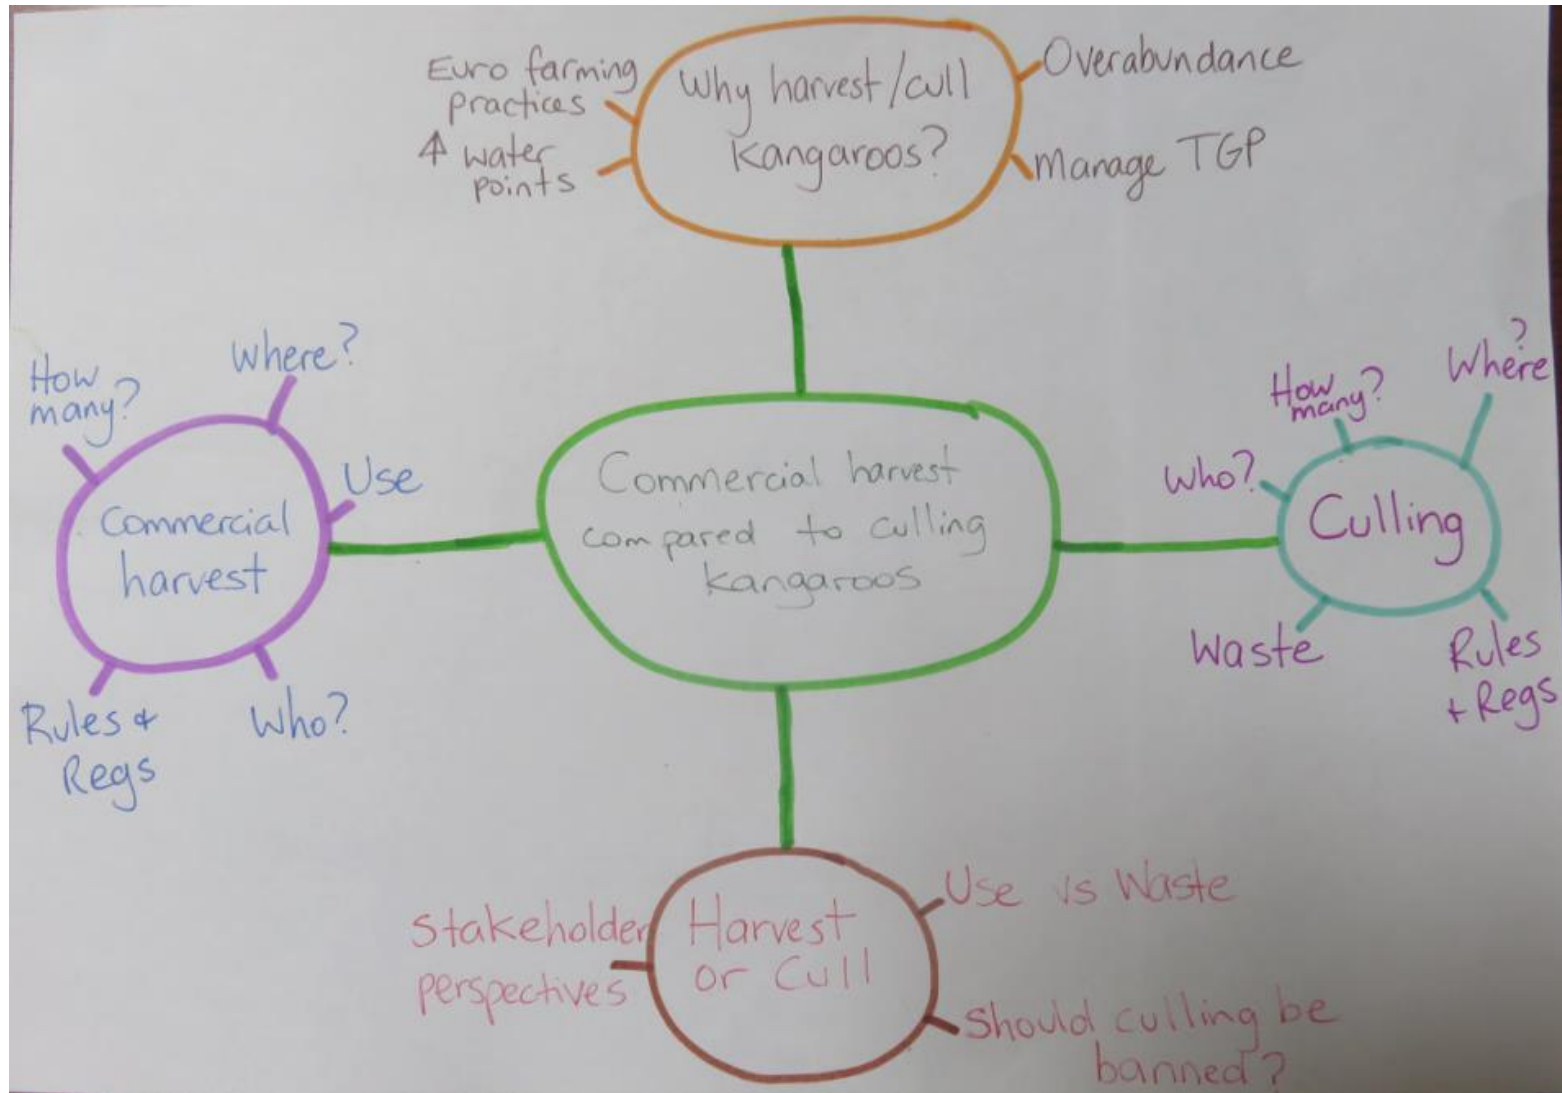 Euro farming
practices
↑ water
points
Why harvest/cull
kangaroos?
Overabundance
Manage TGP
How
many?
Where?
Use
Commercial
harvest
Rules &
Regs
Who?
Commercial harvest
compared to culling
kangaroos
How
many?
?
Where
Who?
Culling
Waste
Rules
+ Regs
Stakeholder
perspectives
Harvest
or Cull
Use vs Waste
Should culling be
banned?